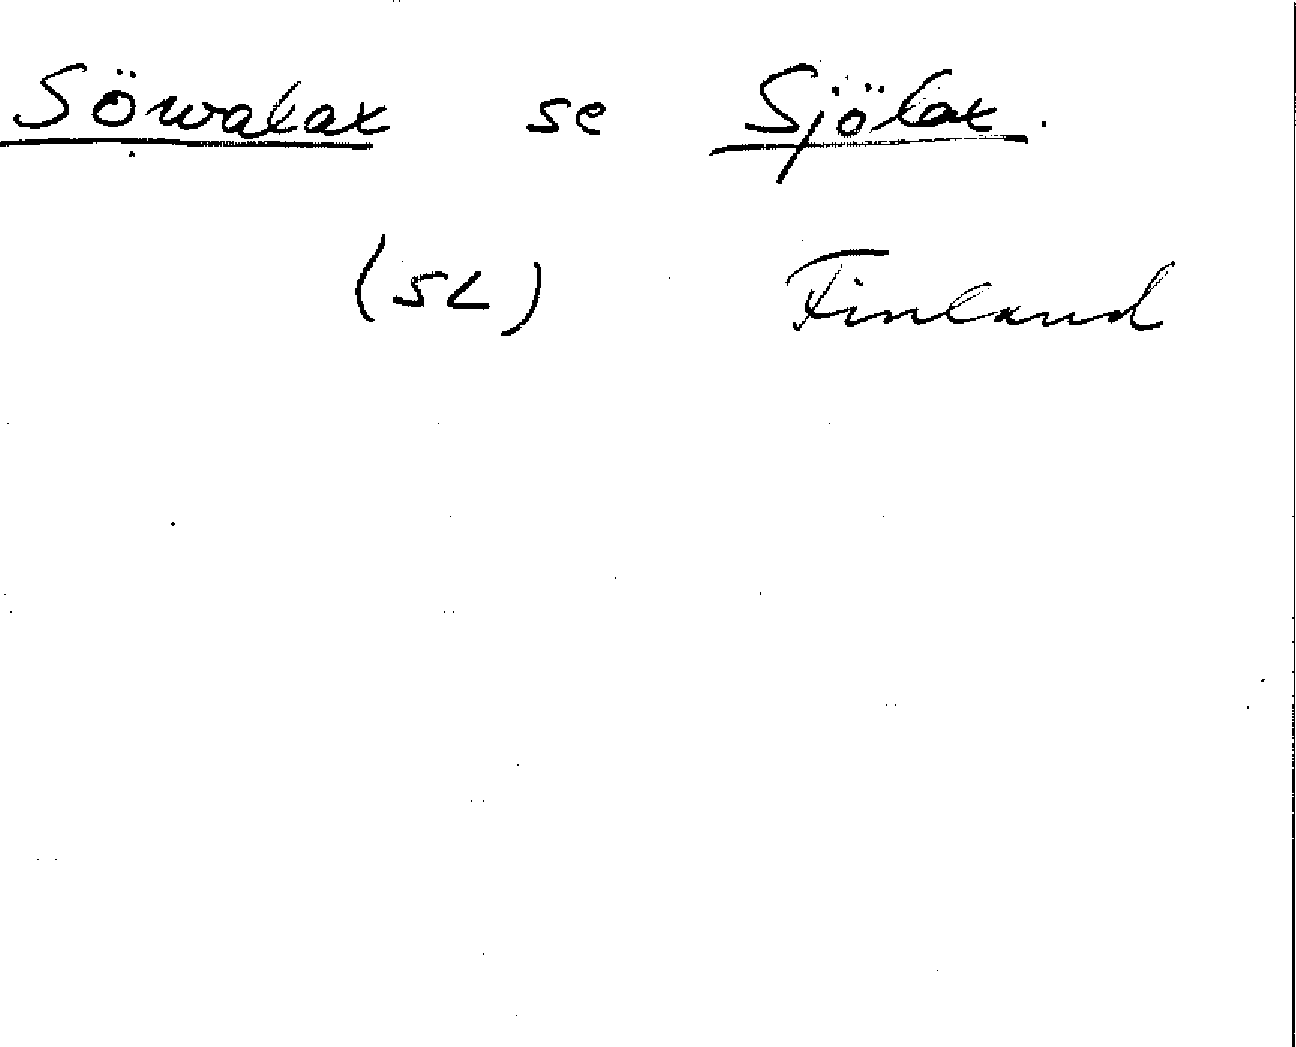 Söwalax se Sjölax.
(SL) Finland